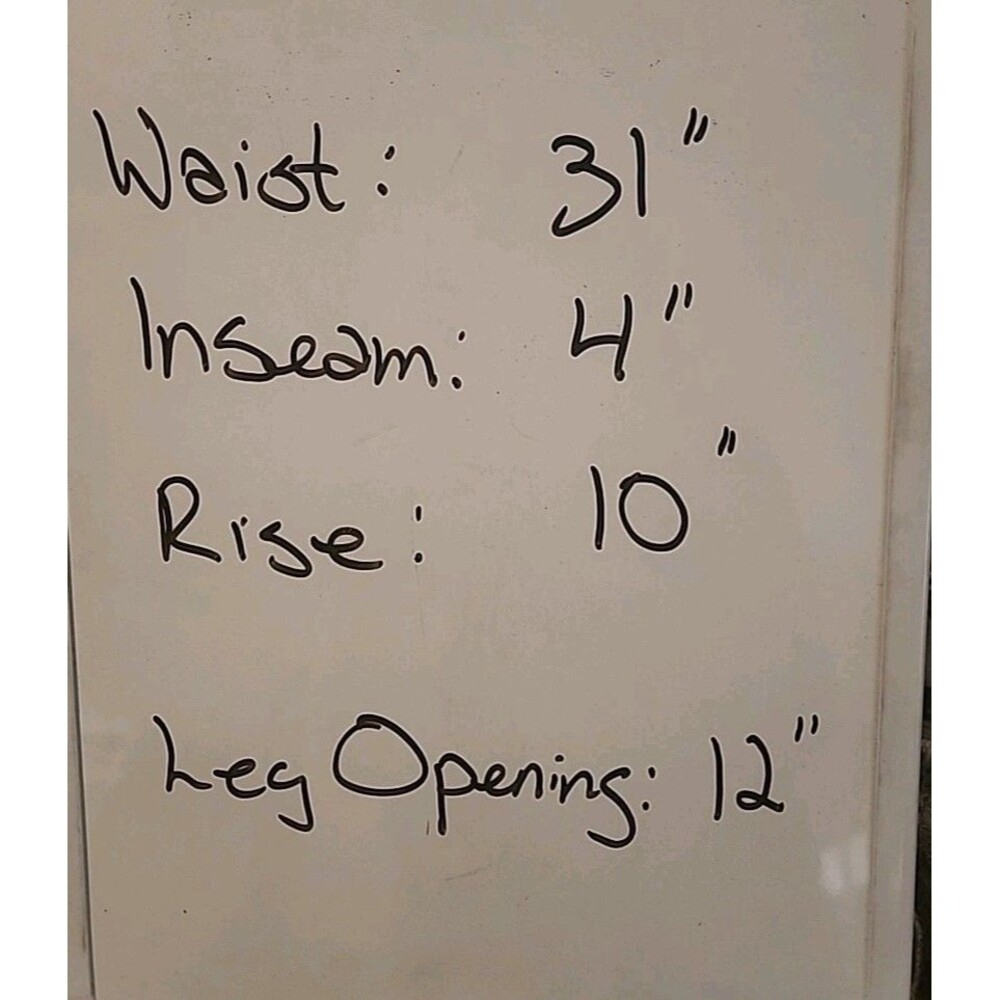 Waist: 31"
Inseam: 4"
Rise: 10"
Leg Opening: 12"